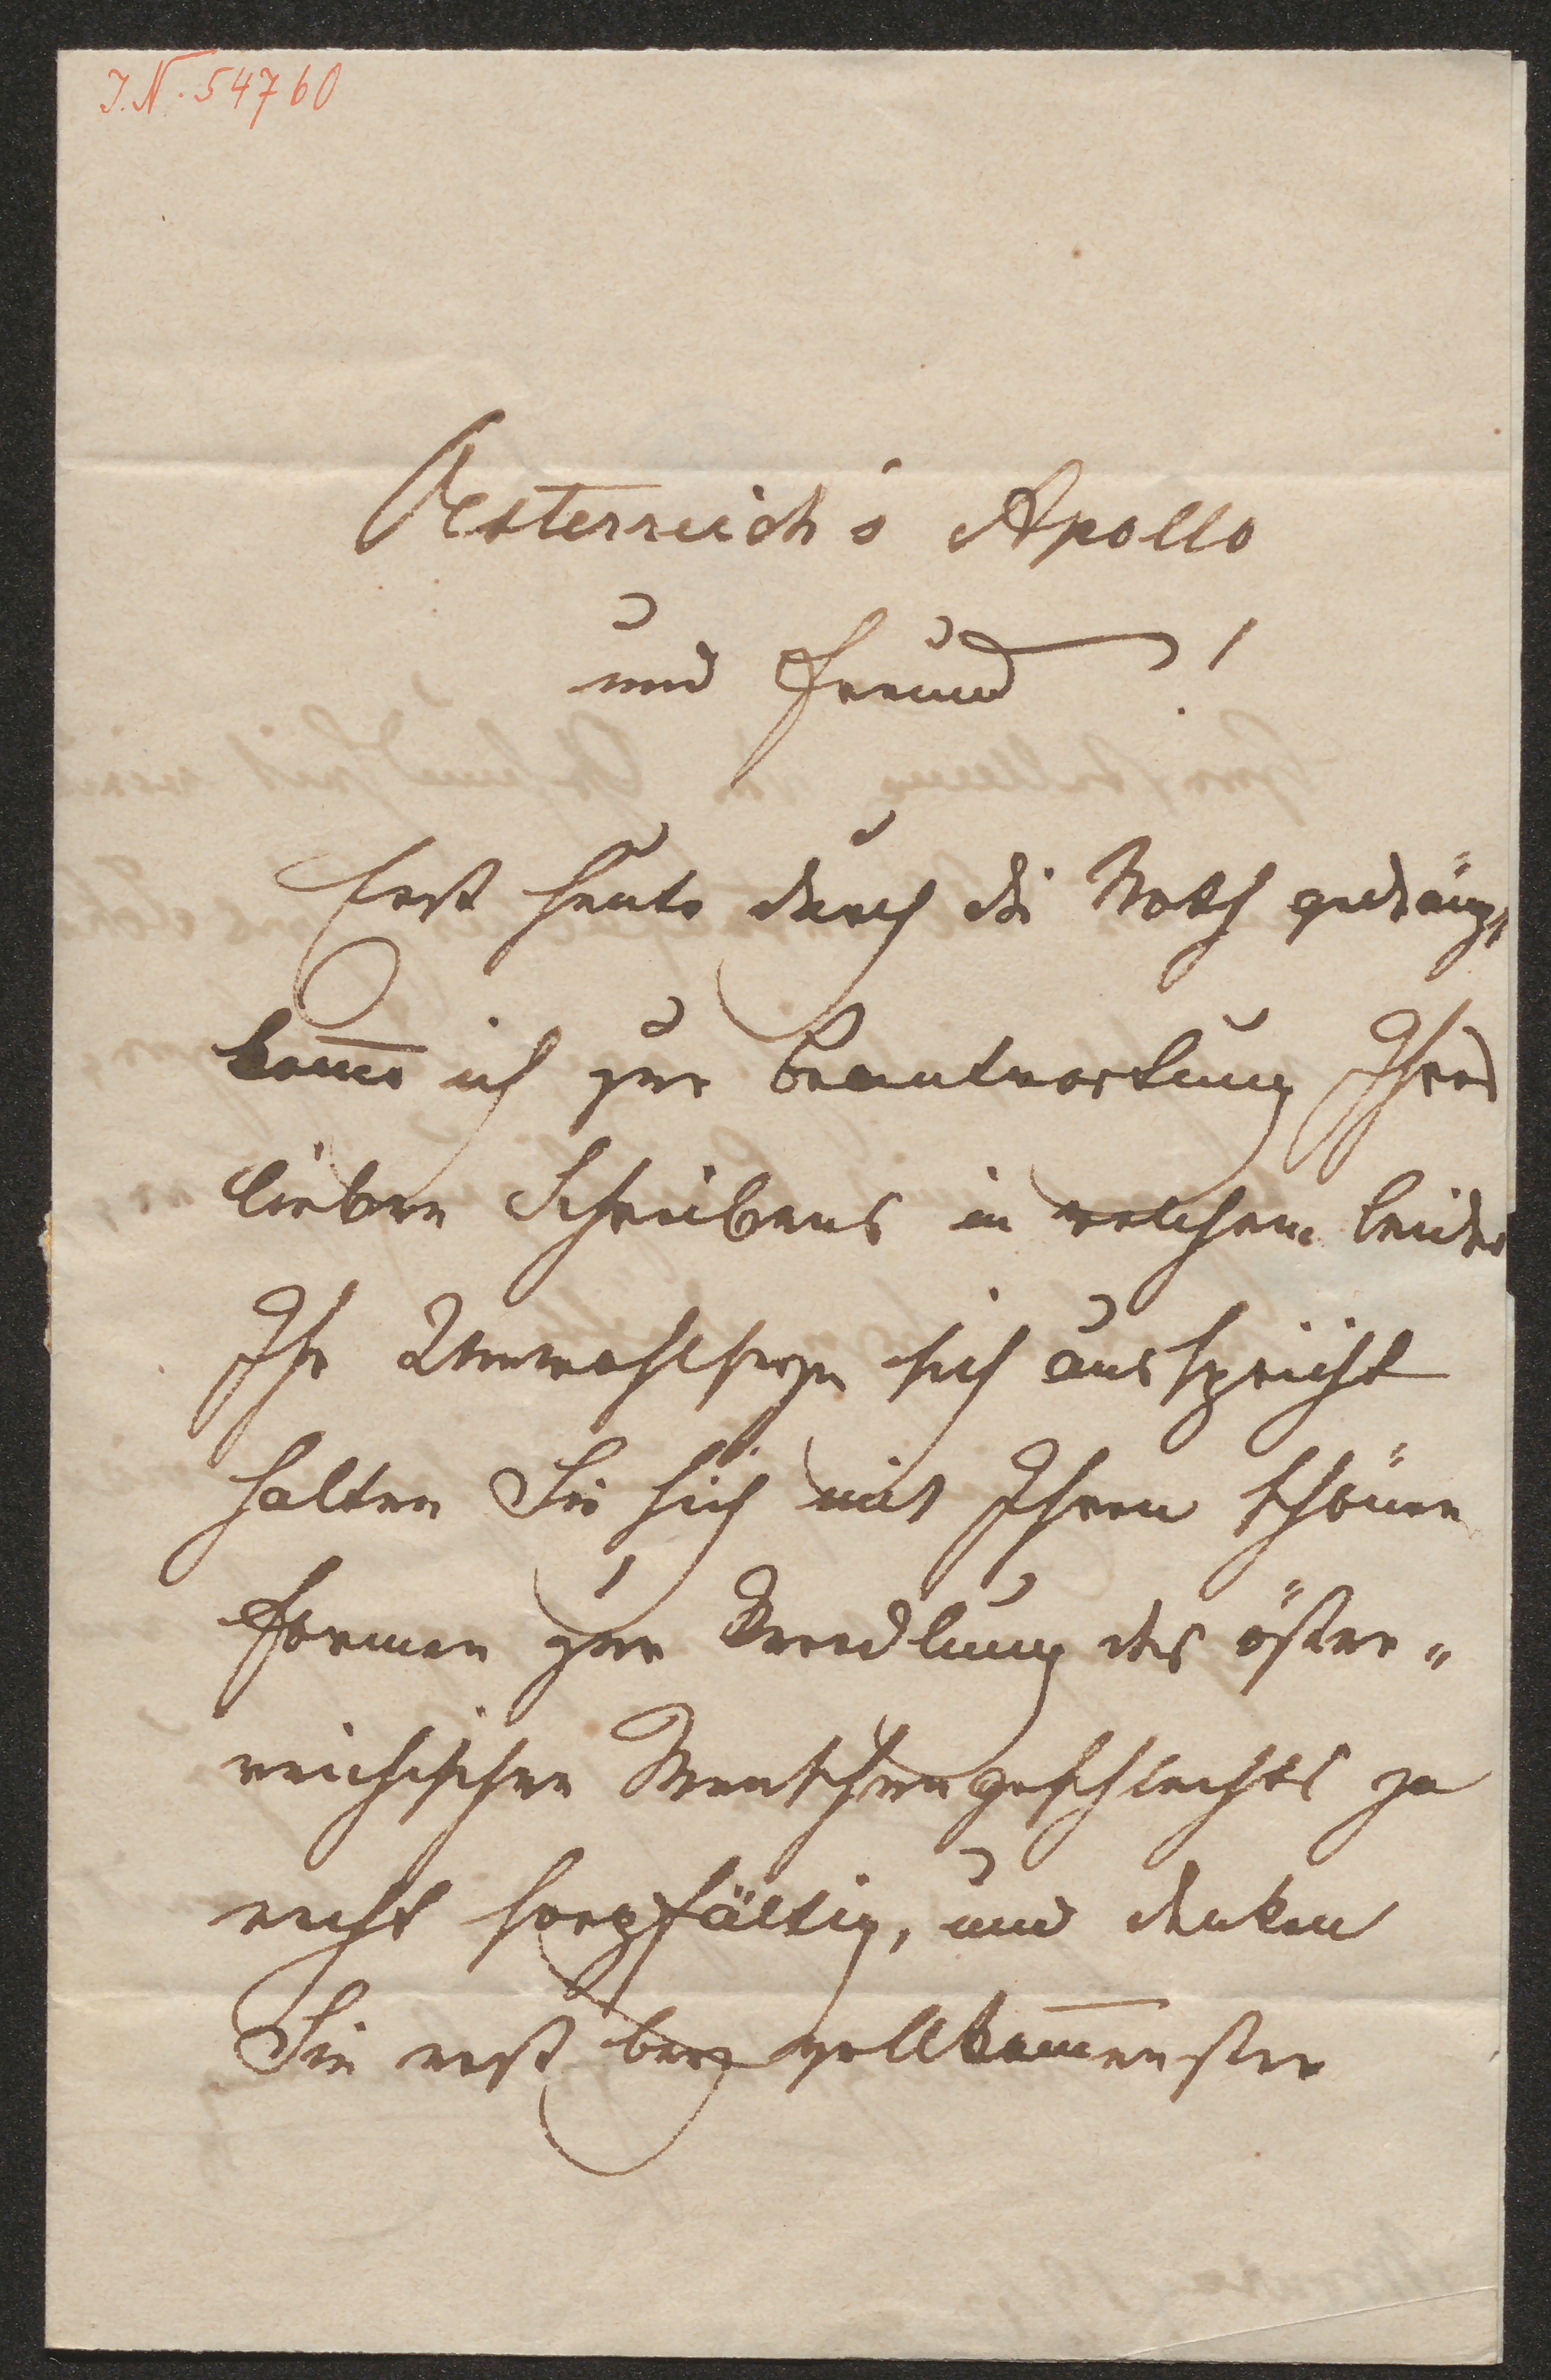 I.N. 54760
Oesterreich's Apollo
und Freund!
Erst heute durch die Noth gedräng,
kom̅e ich zur Beantwortung Ihres
lieben Schreibens in welchem leider
Ihr Unwohlseyn sich ausspricht
halten Sie sich mit Ihren schönen
Formen zur Veredlung des öster„
reichischen Menschengeschlechts ja
recht sorgfältig, und denken
Sie erst bey vollkom̅enster